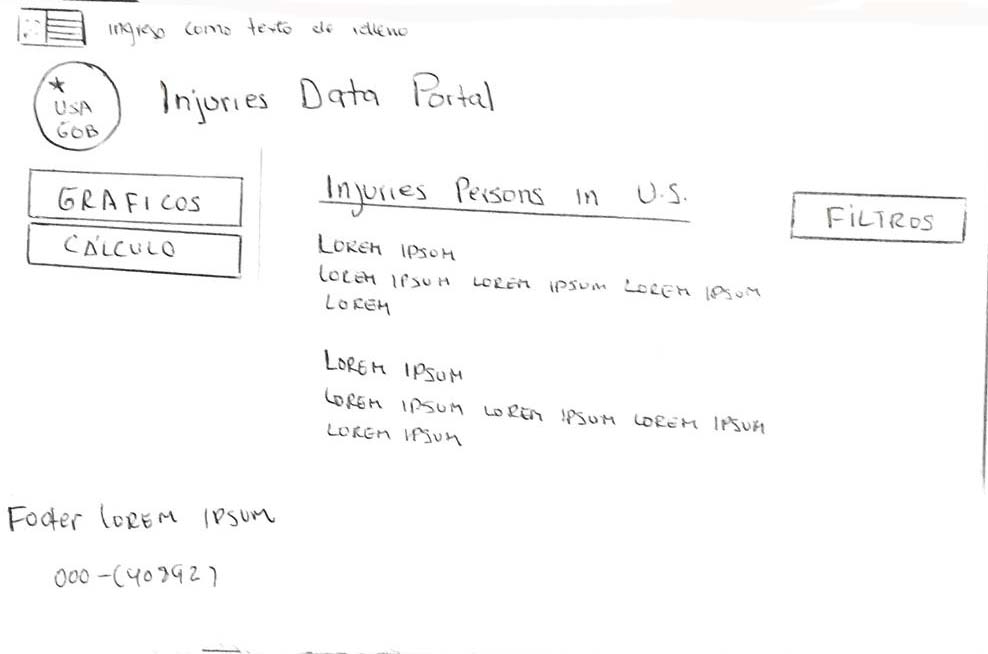 ingreso como texto de relleno
★
USA
GOB
Injuries Data Portal
GRAFICOS
CÁLCULO
Injuries Persons in U.S.
FiLTROS
LOREM IPSOM
LOREM IPSUM LOREM IPSUM LOREM IPSUM
LOREM
LOREM IPSUM
LOREM IPSUM LOREM IPSUM LOREM IPSUM
LOREM IPSUM
Footer LOREM IPSUM
000-(40892)